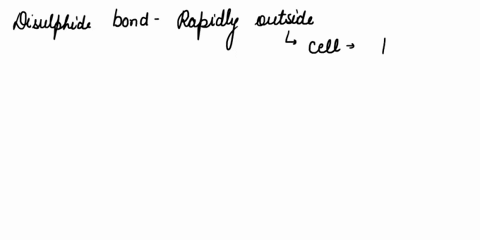 Disulphide bond - Rapidly outside
↳ cell → I